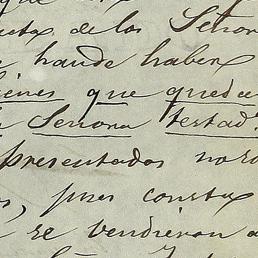 que
de los Señor
haude haber
ienes que queda
Señora testad
presentados no so
pues consta
se vendieron a